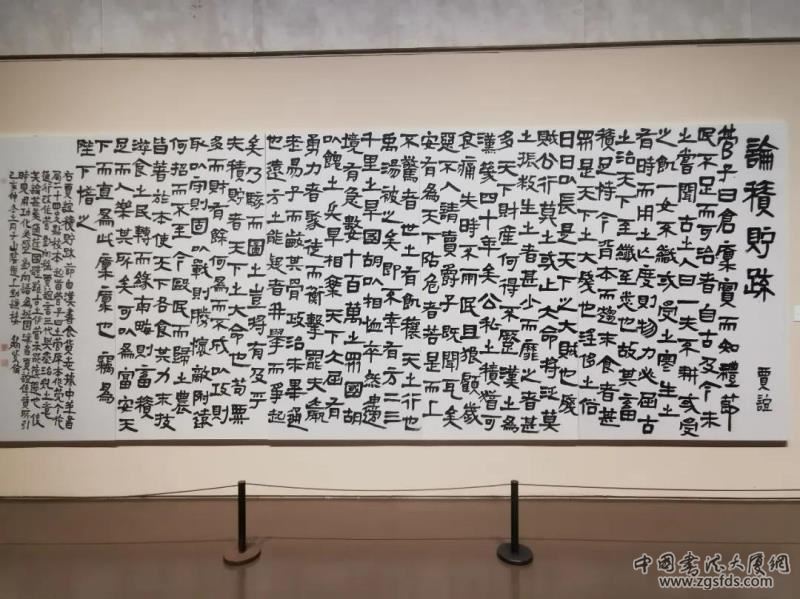 論積貯疏
賈誼
管子曰倉廩實而知禮節
民不足而可治者自古及今未
之嘗聞古之人曰一夫不耕或受
之飢一女不織或受之寒生之
有時而用之亡度則物力必屈古
之治天下至纖至悉也故其畜
積足恃今背本而趨末食者甚
眾是天下之大殘也淫侈之俗
日日以長是天下之大賊也殘
賊公行莫之或止大命將泛莫
之振救生之者甚少而靡之者甚
多天下財產何得不蹷漢之為
漢幾四十年矣公私之積猶可
哀痛失時不雨民且狼顧歲
惡不入請賣爵子既聞耳矣
安有為天下阽危者若是而上
不驚者世之有飢穰天之行也
禹湯被之矣即不幸有方二三
千里之旱國胡以相恤卒然邊
境有急數十百萬之眾國胡
以餽之兵旱相乘天下大屈有
勇力者聚徒而衡擊罷夫羸
老易子而齩其骨政治未畢通
也遠方之能疑者並舉而爭起
矣乃駭而圖之豈將有及乎
夫積貯者天下之大命也苟粟
多而財有餘何為而不成以攻則
取以守則固以戰則勝懷敵附遠
何招而不至今毆民而歸之農
皆著於本使天下各食其力末技
游食之民轉而緣南畮則畜積
足而人樂其所矣可以為富安天
下而直為此廩廩也竊為
陛下惜之
中国书法大厦网
www.zgsfds.com